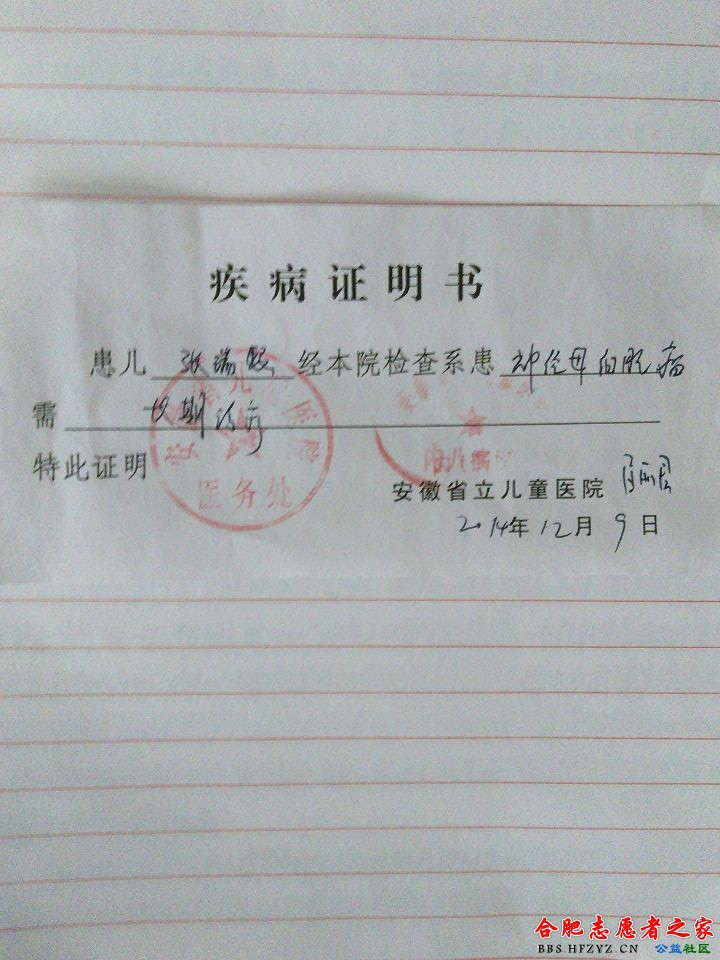 疾病证明书
患儿 张瑞熙 经本院检查系患 神经母细胞瘤
需 长期治疗
特此证明
医务处
安徽省立儿童医院
2014年12月9日
合肥志愿者之家
BBS.HFZYZ.CN 公益社区